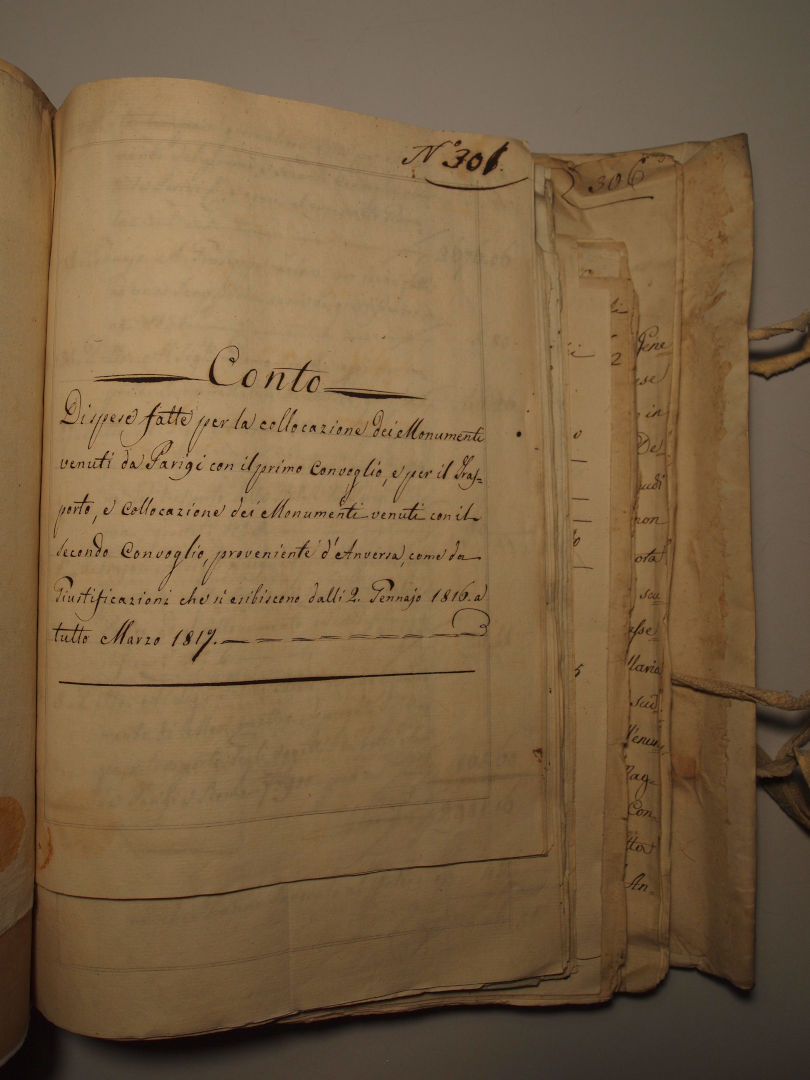 N.º 306.
306
Conto
Di spese fatte per la collocazione dei Monumenti
venuti da Parigi con il primo Convoglio, e per il Tras-
porto, e Collocazione dei Monumenti venuti con il
secondo Convoglio, proveniente d'Anversa, come da
Giustificazioni che si esibiscono dalli 2. Gennajo 1816. a
tutto Marzo 1817.
2
Gene
ese
in
De
non
scu
Maria
scud
Con-
An-
5